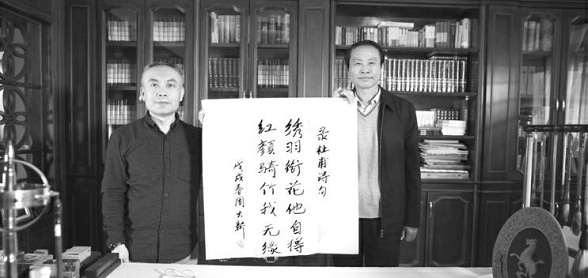 录杜甫诗句
绣羽衔花他自得
红顏骑竹我无缘
戊戌春周大新